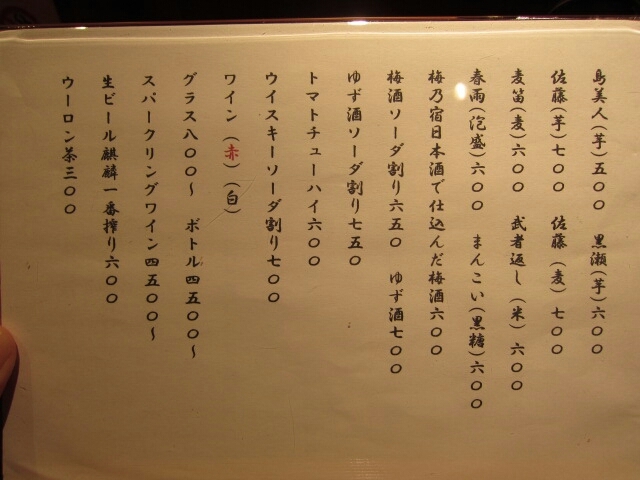 島美人（芋）五〇〇　黒瀬（芋）六〇〇
佐藤（芋）七〇〇　佐藤（麦）七〇〇
麦笛（麦）六〇〇　武者返し（米）六〇〇
春雨（泡盛）六〇〇　まんこい（黒糖）六〇〇
梅乃宿日本酒で仕込んだ梅酒六〇〇
梅酒ソーダ割り六五〇　ゆず酒七〇〇
ゆず酒ソーダ割り七五〇
トマトチューハイ六〇〇
ウイスキーソーダ割り七〇〇
ワイン（赤）（白）
グラス八〇〇〜　ボトル四五〇〇〜
スパークリングワイン四五〇〇〜
生ビール麒麟一番搾り六〇〇
ウーロン茶三〇〇